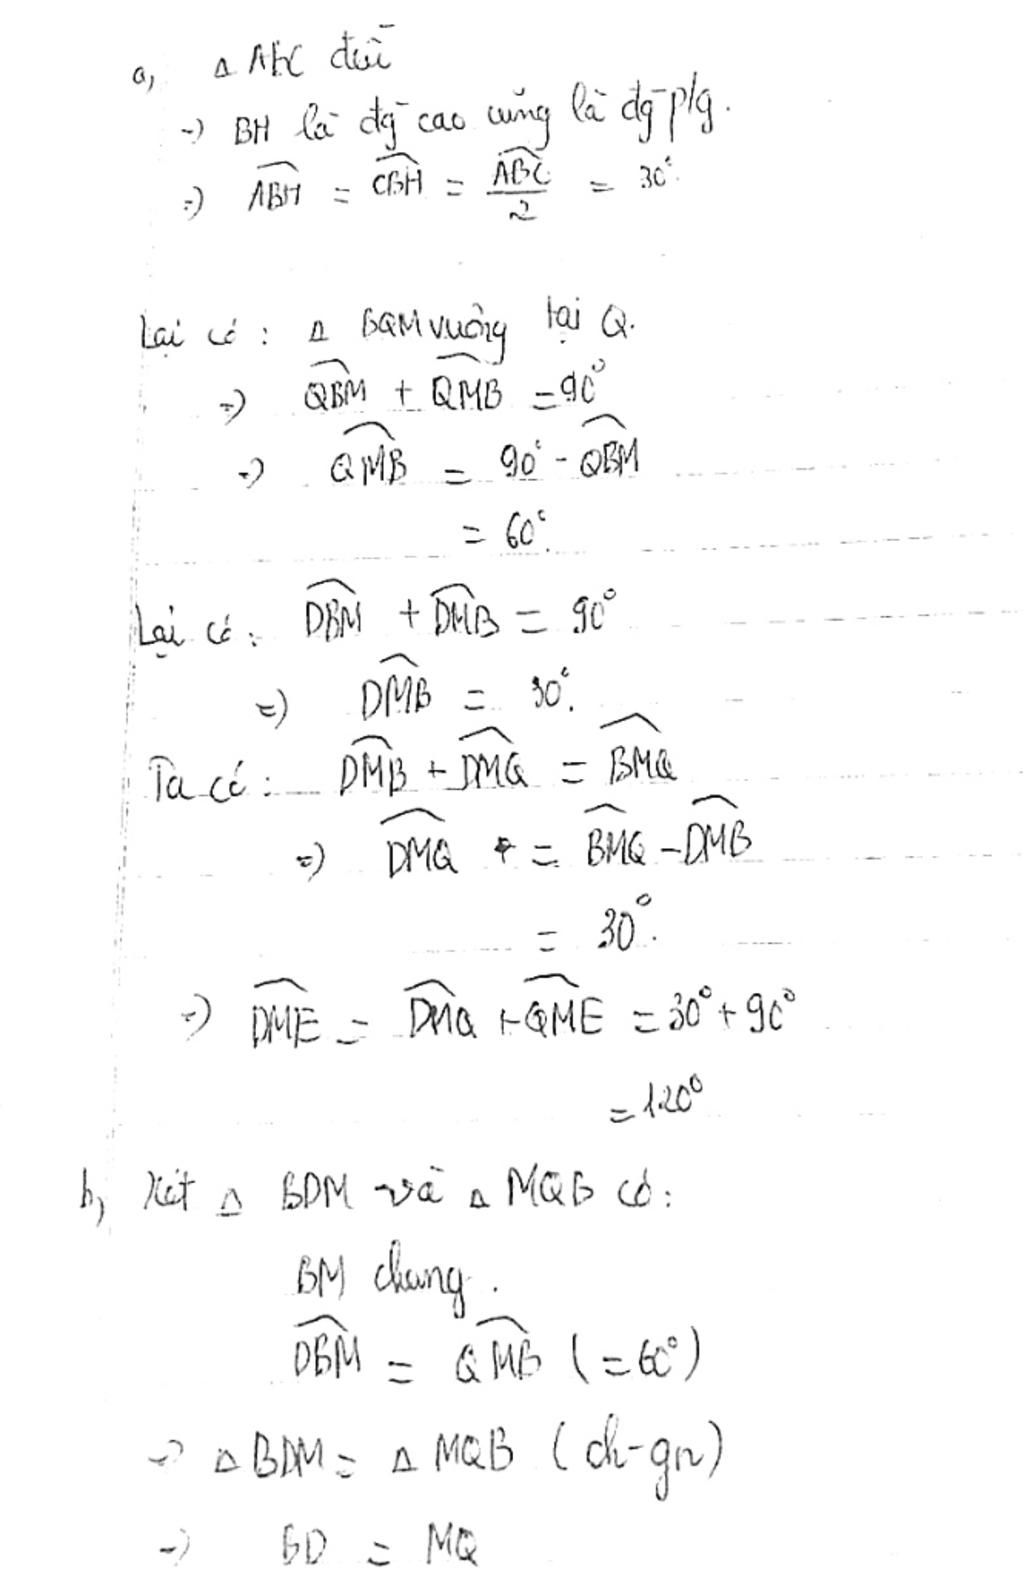 a, Δ ABC đều
=> BH là đg cao cũng là đg p/g.
=> \widehat{ABH} = \widehat{CBH} = \frac{\widehat{ABC}}{2} = 30°.
Lại có : Δ BQM vuông tại Q.
=> \widehat{QBM} + \widehat{QMB} = 90°
=> \widehat{QMB} = 90° - \widehat{QBM}
= 60°.
Lại có : \widehat{DBM} + \widehat{DMB} = 90°
=> \widehat{DMB} = 30°.
Ta có : \widehat{DMB} + \widehat{DMQ} = \widehat{BMQ}
=> \widehat{DMQ} = \widehat{BMQ} - \widehat{DMB}
= 30°.
=> \widehat{DME} = \widehat{DMQ} + \widehat{QME} = 30° + 90°
= 120°
b, Xét Δ BDM và Δ MQB có :
BM chung .
\widehat{DBM} = \widehat{QMB} ( = 60°)
=> Δ BDM = Δ MQB ( ch-gn)
=> BD = MQ